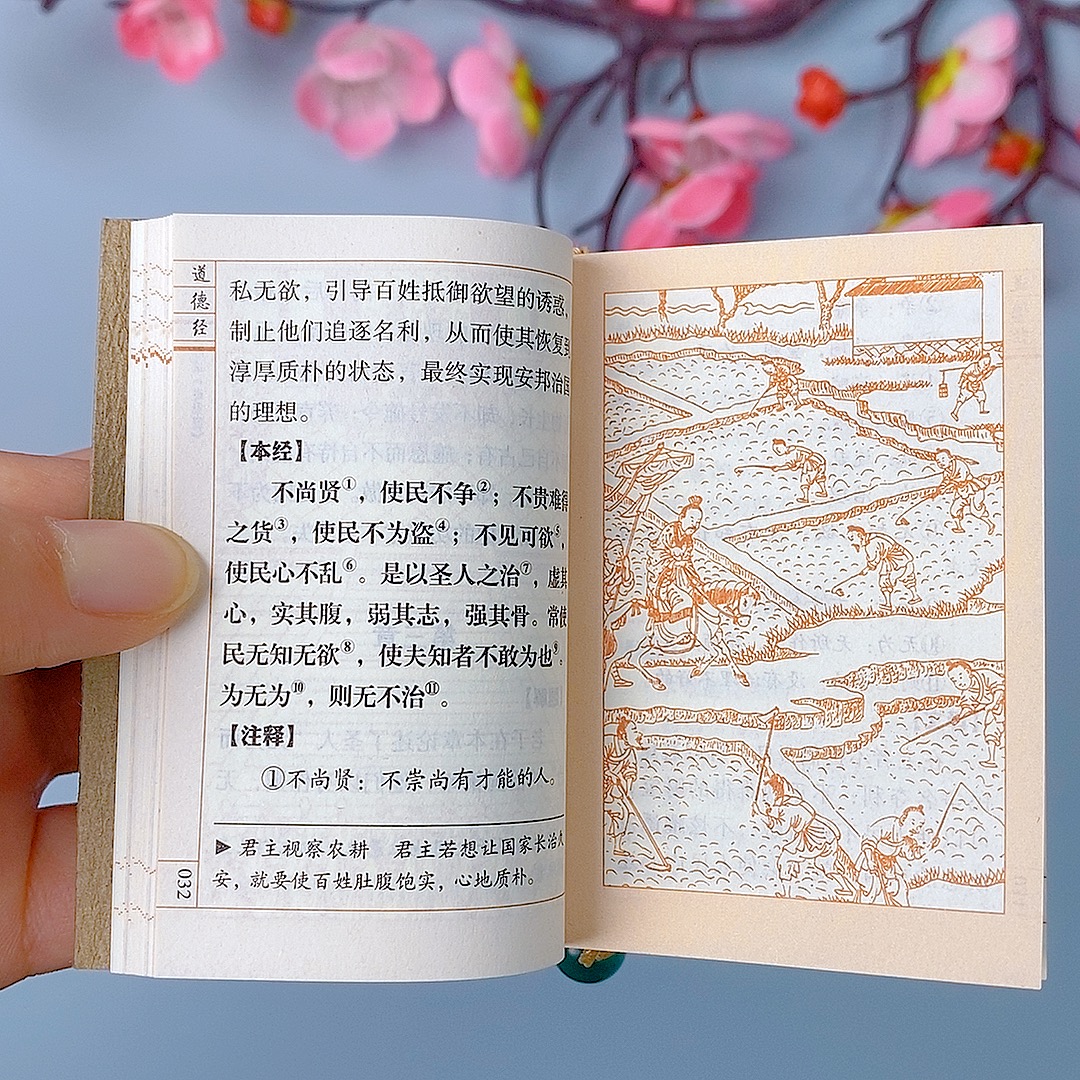 道
德
经
私无欲，引导百姓抵御欲望的诱惑，
制止他们追逐名利，从而使其恢复到
淳厚质朴的状态，最终实现安邦治国
的理想。
【本经】
不尚贤①，使民不争②；不贵难得
之货③，使民不为盗④；不见可欲⑤，
使民心不乱⑥。是以圣人之治⑦，虚其
心，实其腹，弱其志，强其骨。常使
民无知无欲⑧，使夫知者不敢为也⑨。
为无为⑩，则无不治⑪。
【注释】
①不尚贤：不崇尚有才能的人。
▶君主视察农耕 君主若想让国家长治久
安，就要使百姓肚腹饱实，心地质朴。
032